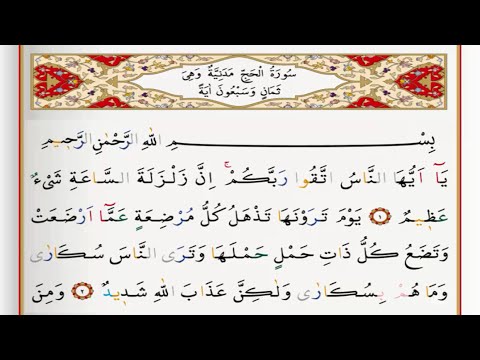 سُورَةُ الْحَجِّ مَدَنِيَّةٌ وَهِيَ
ثَمَانٍ وَسَبْعُونَ اٰيَةً
بِسْمِ اللّٰهِ الرَّحْمٰنِ الرَّحٖيمِ
يَٓا اَيُّهَا النَّاسُ اتَّقُوا رَبَّكُمْۚ اِنَّ زَلْزَلَةَ السَّاعَةِ شَيْءٌ
عَظٖيمٌ ١ يَوْمَ تَرَوْنَهَا تَذْهَلُ كُلُّ مُرْضِعَةٍ عَمَّٓا اَرْضَعَتْ
وَتَضَعُ كُلُّ ذَاتِ حَمْلٍ حَمْلَهَا وَتَرَى النَّاسَ سُكَارٰى
وَمَا هُمْ بِسُكَارٰى وَلٰكِنَّ عَذَابَ اللّٰهِ شَدٖيدٌ ٢ وَمِنَ